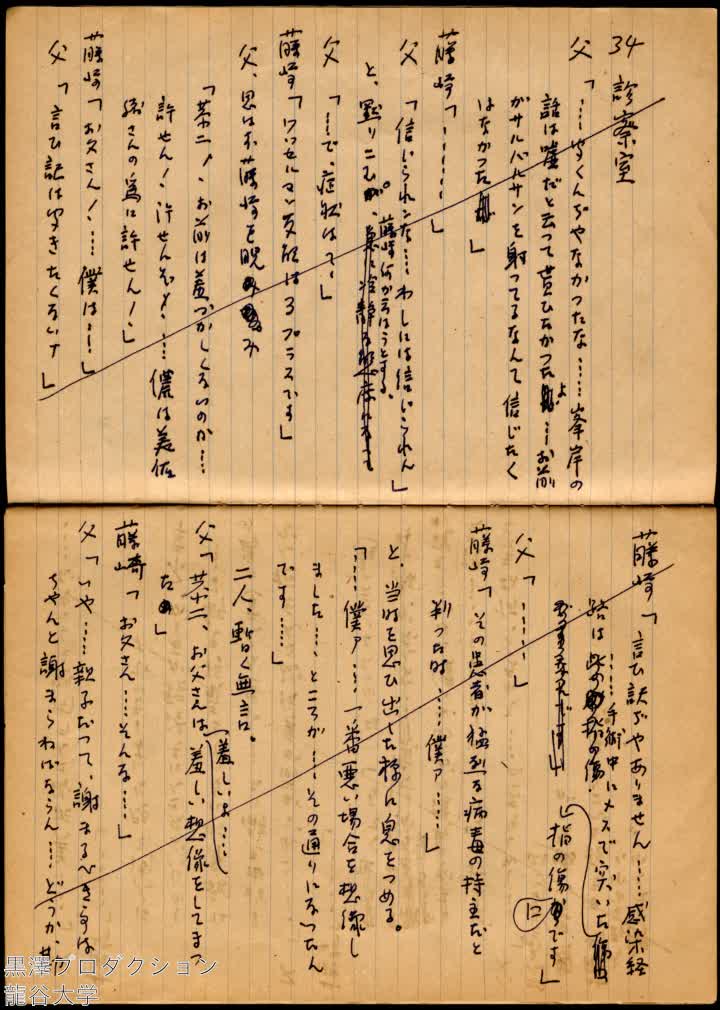 34 診察室
父「……やくんぢやなかつたな……峯岸の
話は嘘だと云つて貰ひたかつたよ…お前
がサルバルサンを射つてるなんて信じたく
はなかつた」
藤崎「…………」
父「信じられンな……わしには信じられん」
と、黙りこむ。
藤崎何か云はうとする。
父「……で、症状は?」
藤崎「ワッセルマン反応は3プラスです」
父、思はず藤崎を睨み
「恭二!、お前は羞づかしくないのか……
許せん!、許せんぞ!……儂は美佐
緒さんの為に許せん!」
藤崎「お父さん!……僕は……」
父「言ひ訳は聞きたくない!」
藤崎「言ひ訳ぢやありません……感染経
路は
……手術中にメスで突いた
指の傷です」
に
父「…………」
藤崎「その患者が猛烈な病毒の持主だと
判つた時……僕ァ……」
と、当時を思ひ出した様に息をつめる。
「……僕ァ……一番悪い場合を想像し
ました……ところが……その通りになつたん
です……」
二人、暫く無言。
「羞しいよ……
父「恭二、お父さんは、羞しい想像をしてまつ
た」
藤崎「お父さん……そんな……」
父「いや……親子だつて、謝まるべき事は
ちやんと謝まらねばならん……どうか、
黒澤プロダクション
龍谷大学